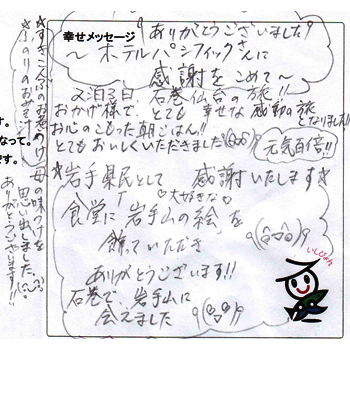 幸せメッセージ
ありがとうございました!
～ホテルパシフィックさんに
感謝をこめて～
2泊3日 石巻仙台の旅!!
おかげ様で、とても 幸せな感動の旅
となりました!!
お心のこもった朝ごはん!!
とてもおいしくいただきました
元気百倍!!
☆岩手県民として 感謝いたします
大好きな
食堂に「岩手山の絵」を
飾っていただき
ありがとうございます!!
石巻で、岩手山に
会えました
いしぴょん
☆すきこんぶのお煮つけ
☆ふのりのお味噌汁
母の味つけを
思い出しました。
ありがとうございます!!
す。
なって。
です。